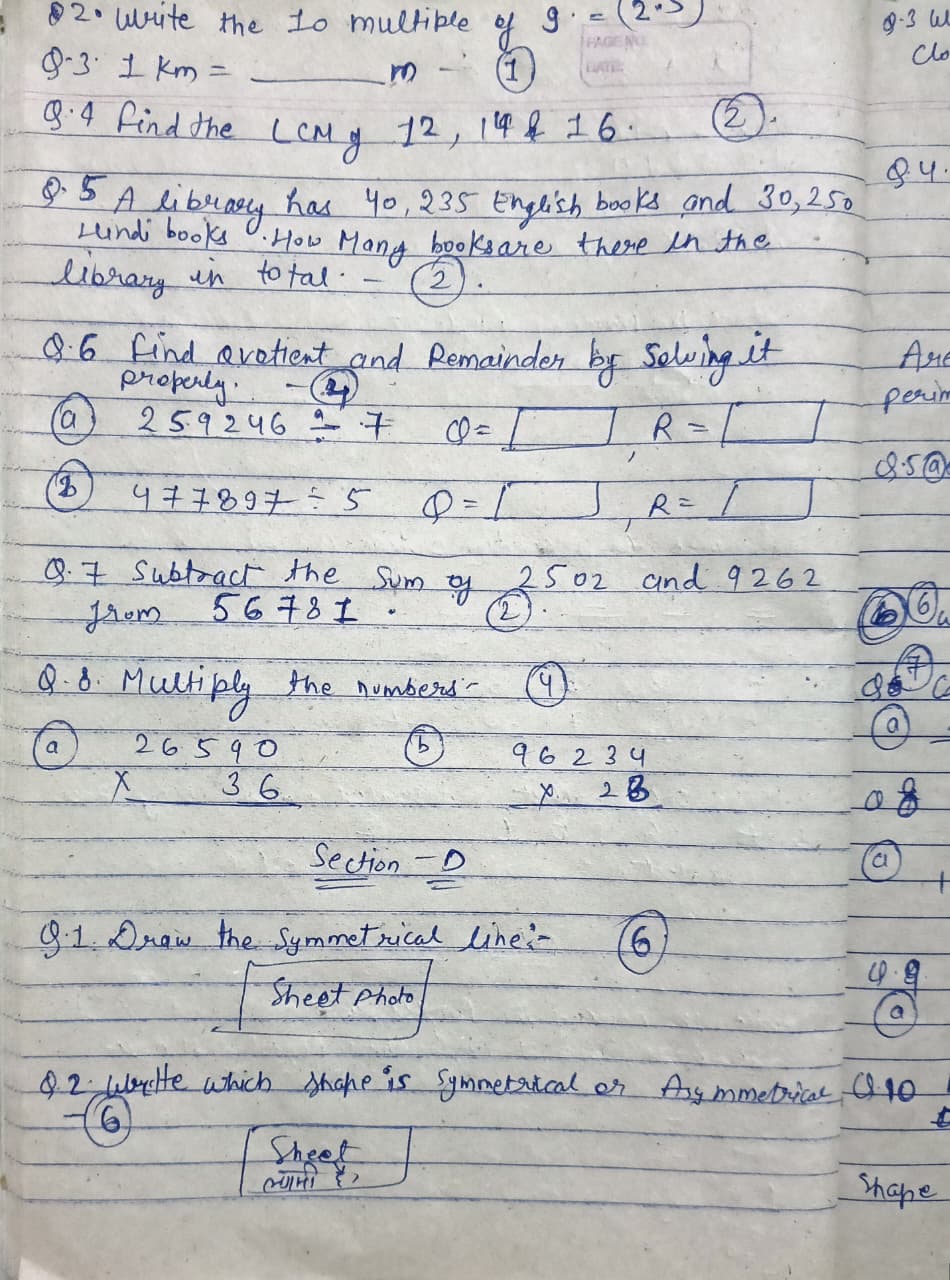 Q2. Write the 10 multiple of 9. = (2.5)
PAGE NO.
DATE:
Q.3. 1 Km = ________ m - (1)
Q.4 find the LCM of 12, 14 & 16. (2).
Q.5 A library has 40,235 English books and 30,250
Hindi books. How Many books are there in the
library in total. - (2).
Q.6 find Quotient and Remainder by Solving it
properly. - (4)
(a) 259246 ÷ 7 Q = , R =
(B) 477897 ÷ 5 Q = , R =
Q.7 Subtract the Sum of 2502 and 9262
from 56781. (2).
Q.8. Multiply the numbers:- (4)
(a) 26590 (b) 96234
x 36 x. 28
Section - D
Q.1. Draw the Symmetrical line:- (6)
Sheet Photo
Q.2. Write which shape is Symmetrical or Asymmetrical
- (6)
Sheet
लगानी है,
Q.3 W
Clo
Q.4.
Are
perim
Q.5 (a)
(b) (6)
(7)
(a)
Q 8
(a)
Q.9
(a)
Q.10
Shape